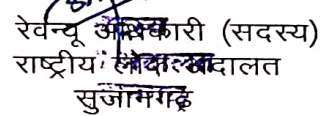 रेवेन्यू अधिकारी (सदस्य)
राष्ट्रीय लोक अदालत
सुजानगढ़